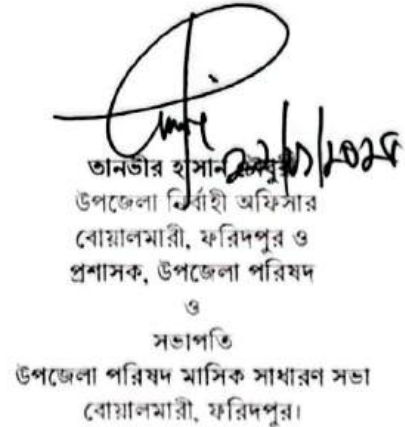 তানভীর হাসান চৌধুরী
উপজেলা নির্বাহী অফিসার
বোয়ালমারী, ফরিদপুর ও
প্রশাসক, উপজেলা পরিষদ
ও
সভাপতি
উপজেলা পরিষদ মাসিক সাধারণ সভা
বোয়ালমারী, ফরিদপুর।